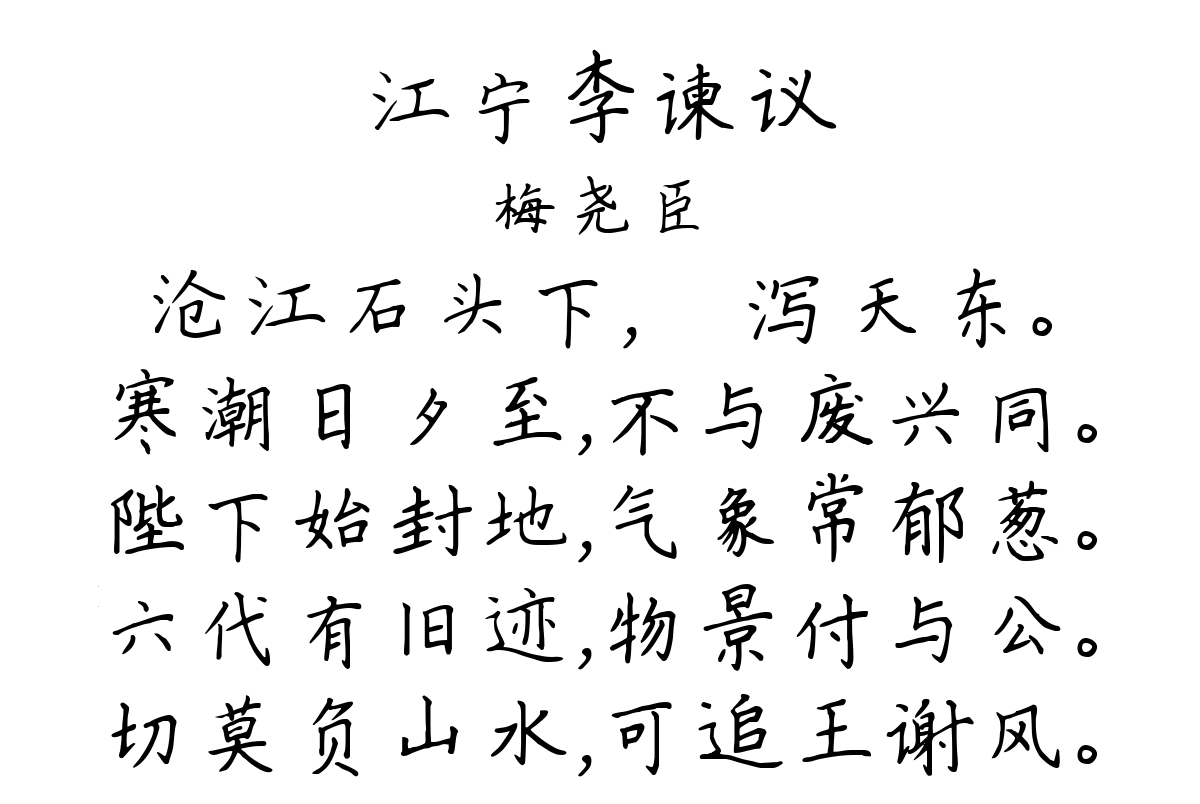 江宁李谏议
梅尧臣
沧江石头下， 泻天东。
寒潮日夕至,不与废兴同。
陛下始封地,气象常郁葱。
六代有旧迹,物景付与公。
切莫负山水,可追王谢风。